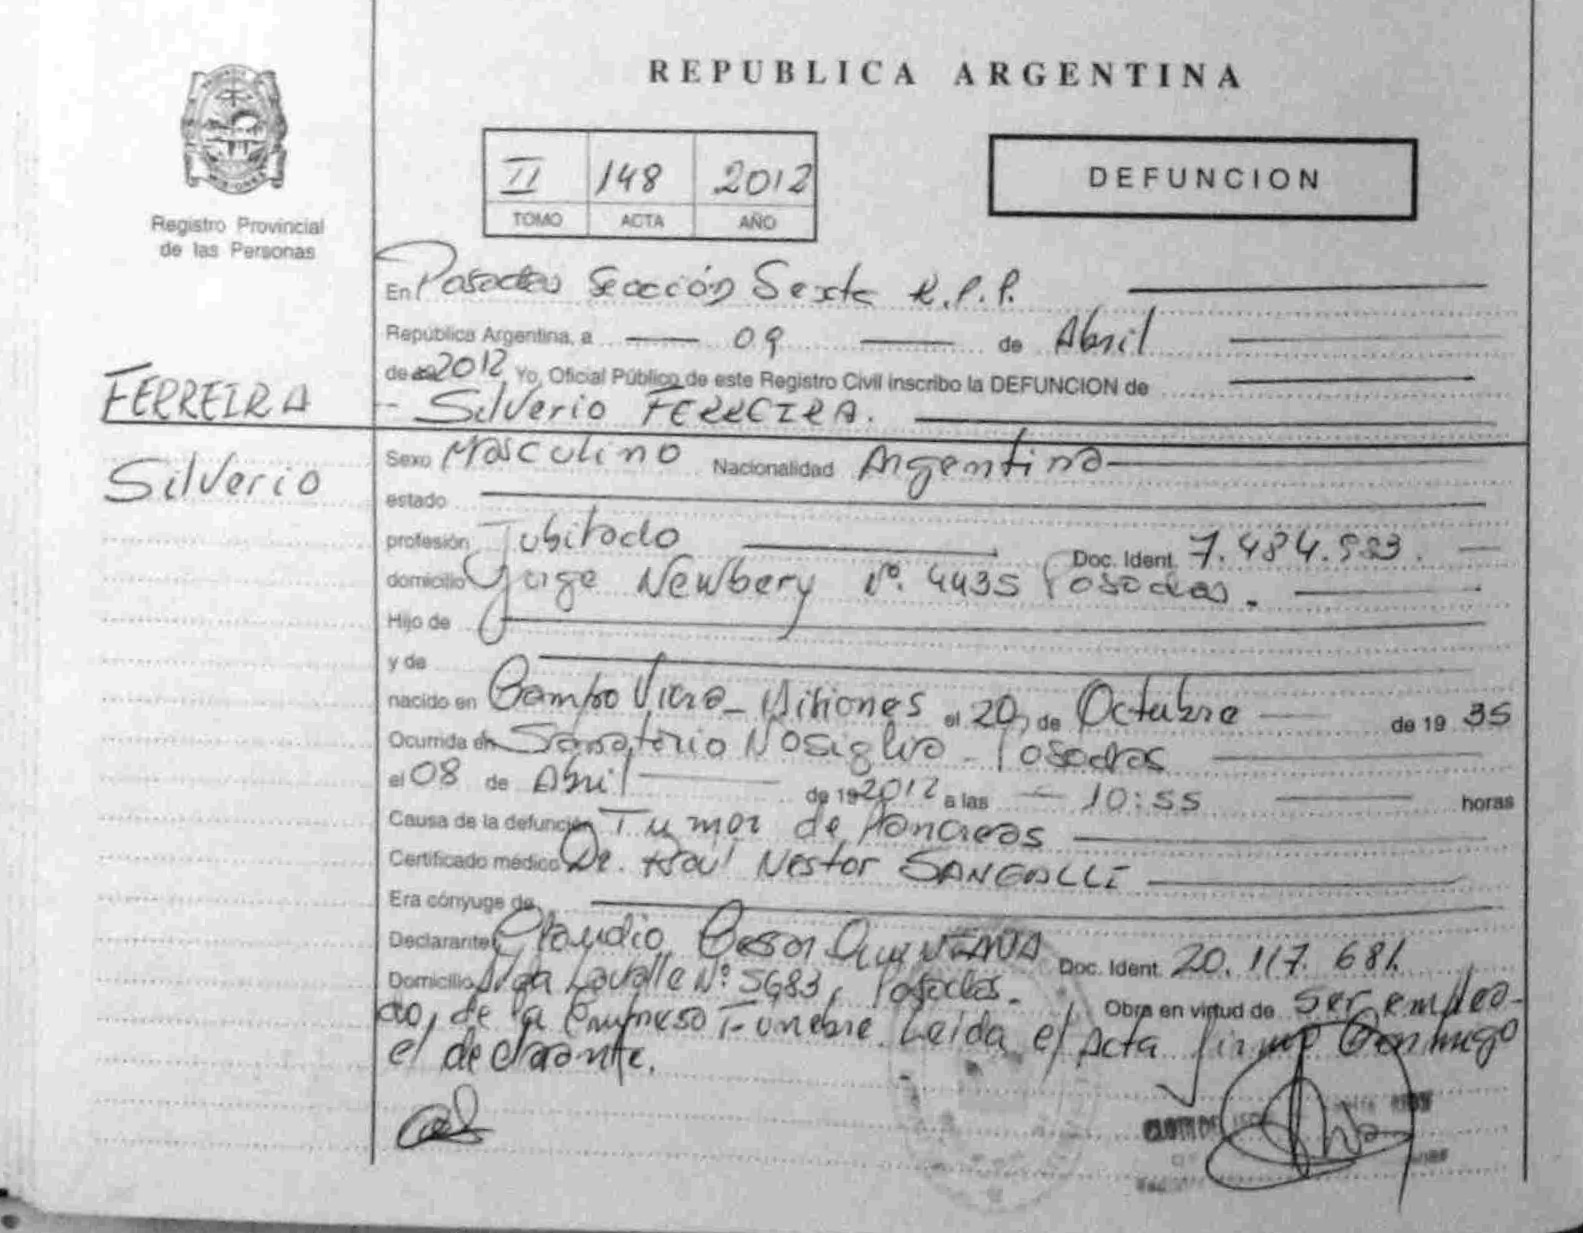 REPUBLICA ARGENTINA
II 148 2012
TOMO ACTA AÑO
DEFUNCION
Registro Provincial
de las Personas
En Posadas Sección Sexta R.P.P.
República Argentina, a 09 de Abril
de 2012 Yo, Oficial Público de este Registro Civil inscribo la DEFUNCION de
FERREIRA
Silverio FERREIRA.
Silverio
Sexo Masculino Nacionalidad Argentina
estado
profesión Jubilado Doc. Ident. 7.484.
domicilio Jorge Newbery Nº. 4435 Posadas.
Hijo de
y de
nacido en Campo Viera - Misiones el 20, de Octubre de 19 35
Ocurrida en Sanatorio Nosiglia - Posadas
el 08 de Abril de 2012 a las 10:55 horas
Causa de la defunción Tumor de Pancreas
Certificado médico Dr. Nestor SANGALLI
Era cónyuge de
Declarante Claudio Cesar QUINTANA Doc. Ident. 20.117.681
Domicilio Lavalle Nº: 5683, Posadas. Obra en virtud de ser emplea-
do, de la Empresa Funebre. Leida el Acta firma Conmigo
el declarante.